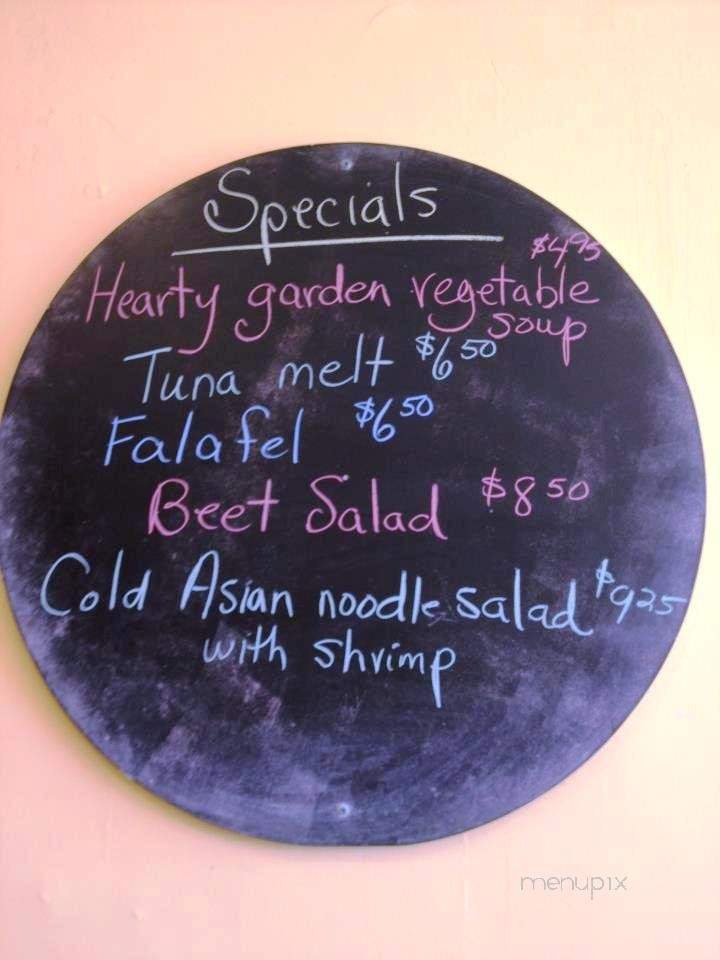 Specials
$4.95
Hearty garden vegetable
soup
Tuna melt $6.50
Falafel $6.50
Beet Salad $8.50
Cold Asian noodle salad $9.25
with shrimp
menupix